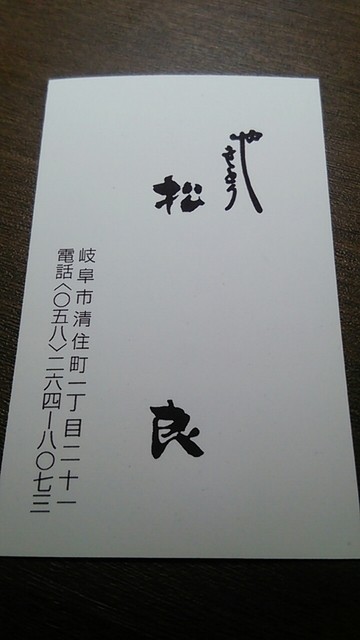 やきとり
松良
岐阜市清住町一丁目二十一
電話〈〇五八〉二六四ー八〇七三